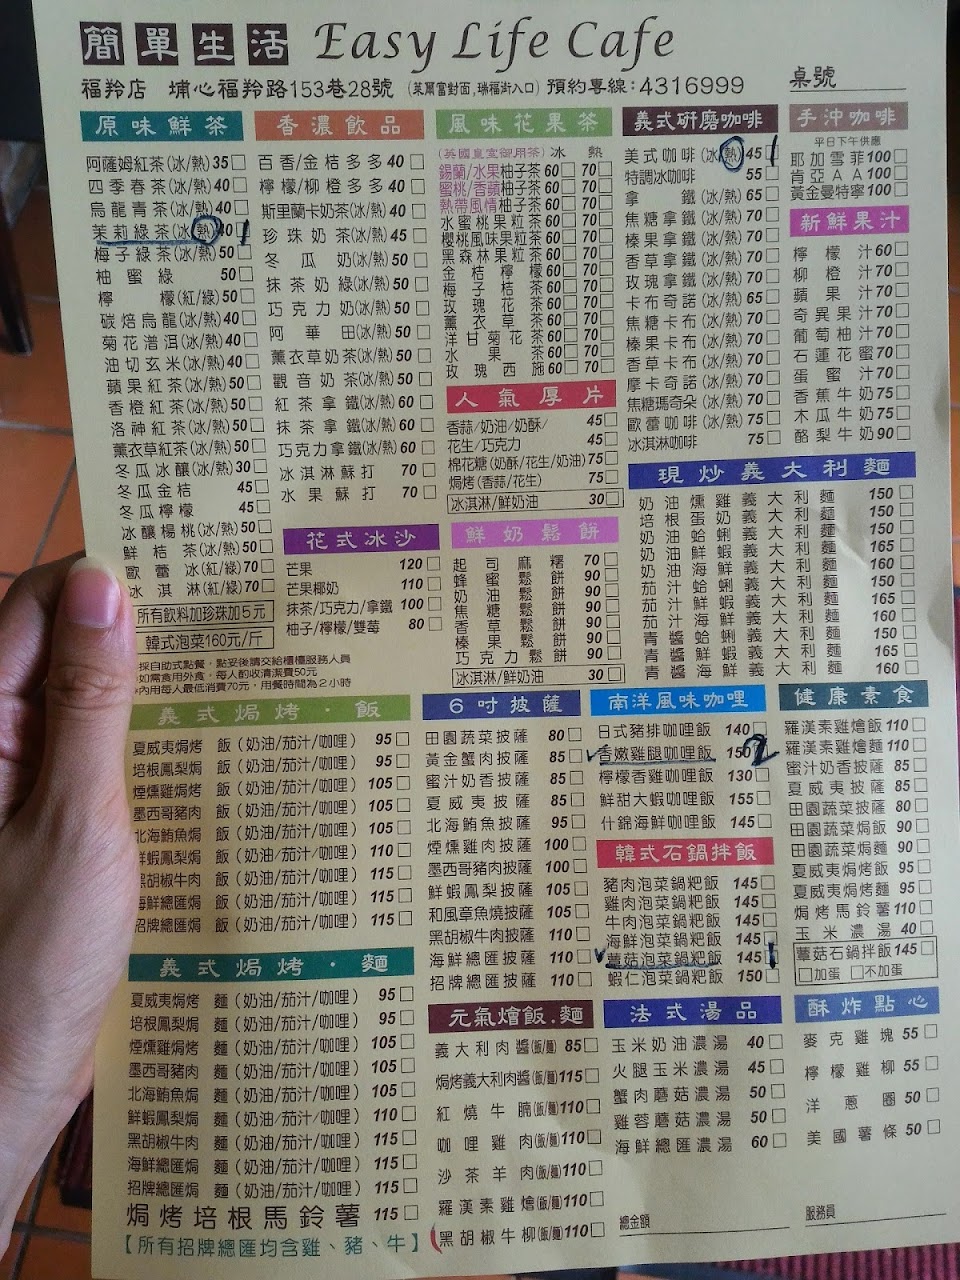 簡單生活 Easy Life Cafe
福羚店 埔心福羚路153巷28號 (萊爾富對面,瑞福街入口) 預約專線:4316999 桌號
原味鮮茶
阿薩姆紅茶(冰/熱) 35
四季春茶(冰/熱) 40
烏龍青茶(冰/熱) 40
茉莉綠茶(冰/熱) 40 1
梅子綠茶(冰/熱) 50
柚蜜綠 50
檸檬(紅/綠) 50
碳焙烏龍(冰/熱) 40
菊花普洱(冰/熱) 40
油切玄米(冰/熱) 40
蘋果紅茶(冰/熱) 50
香橙紅茶(冰/熱) 50
洛神紅茶(冰/熱) 50
薰衣草紅茶(冰/熱) 50
冬瓜冰釀(冰/熱) 30
冬瓜金桔 45
冬瓜檸檬 45
冰釀楊桃(冰/熱) 50
鮮桔茶(冰/熱) 50
歐蕾冰(紅/綠) 70
冰淇淋(紅/綠) 70
所有飲料加珍珠加5元
韓式泡菜160元/斤
採自助式點餐,點妥後請交給櫃檯服務人員
如需食用外食,每人酌收清潔費50元
內用每人最低消費70元,用餐時間為2小時
香濃飲品
百香/金桔多多 40
檸檬/柳橙多多 40
斯里蘭卡奶茶(冰/熱) 40
珍珠奶茶(冰/熱) 50
冬瓜奶(冰/熱) 50
抹茶奶綠(冰/熱) 50
巧克力奶(冰/熱) 50
阿華田(冰/熱) 50
薰衣草奶茶(冰/熱) 50
觀音奶茶(冰/熱) 50
紅茶拿鐵(冰/熱) 60
抹茶拿鐵(冰/熱) 60
巧克力拿鐵(冰/熱) 60
冰淇淋蘇打 70
水果蘇打 70
花式冰沙
芒果 120
芒果椰奶 110
抹茶/巧克力/拿鐵 100
柚子/檸檬/雙莓 80
風味花果茶
(英國皇室御用茶) 冰 熱
錫蘭/水果柚子茶 60 70
蜜桃/香蘋柚子茶 60 70
熱帶風情柚子茶 60 70
水蜜桃果粒茶 60 70
櫻桃風味果粒茶 60 70
黑森林果粒茶 60 70
金桔檸檬 60 70
梅子桔茶 60 70
玫瑰花茶 60 70
薰衣草茶 60 70
洋甘菊花茶 60 70
水果茶 60 70
玫瑰西施 60 70
人氣厚片
香蒜/奶油/奶酥/ 45
花生/巧克力 45
棉花糖(奶酥/花生/奶油) 75
焗烤(香蒜/花生) 75
冰淇淋/鮮奶油 30
鮮奶鬆餅
起司麻糬 70
蜂蜜鬆餅 90
奶油鬆餅 90
焦糖鬆餅 90
榛果鬆餅 90
巧克力鬆餅 90
冰淇淋/鮮奶油 30
義式研磨咖啡
美式咖啡(冰/熱) 45 1
特調冰咖啡 55
拿鐵(冰/熱) 65
焦糖拿鐵(冰/熱) 70
榛果拿鐵(冰/熱) 70
香草拿鐵(冰/熱) 70
玫瑰拿鐵(冰/熱) 70
卡布奇諾(冰/熱) 65
焦糖卡布(冰/熱) 70
榛果卡布(冰/熱) 70
香草卡布(冰/熱) 70
摩卡奇諾(冰/熱) 70
焦糖瑪奇朵(冰/熱) 70
歐蕾咖啡(冰/熱) 75
冰淇淋咖啡 75
手沖咖啡
平日下午供應
耶加雪菲 100
肯亞AA 100
黃金曼特寧 100
新鮮果汁
檸檬汁 60
柳橙汁 70
蘋果汁 70
奇異果汁 70
葡萄柚汁 70
石蓮花蜜 70
蛋蜜汁 70
香蕉牛奶 75
木瓜牛奶 75
酪梨牛奶 90
現炒義大利麵
奶油燻雞義大利麵 150
培根蛋奶義大利麵 150
奶油蛤蜊義大利麵 150
奶油鮮蝦義大利麵 165
奶油海鮮義大利麵 160
茄汁蛤蜊義大利麵 150
茄汁鮮蝦義大利麵 165
茄汁海鮮義大利麵 160
青醬蛤蜊義大利麵 150
青醬鮮蝦義大利麵 165
青醬海鮮義大利麵 160
義式焗烤・飯
夏威夷焗烤 飯(奶油/茄汁/咖哩) 95
培根鳳梨焗 飯(奶油/茄汁/咖哩) 95
煙燻雞焗烤 飯(奶油/茄汁/咖哩) 105
墨西哥豬肉 飯(奶油/茄汁/咖哩) 105
北海鮪魚焗 飯(奶油/茄汁/咖哩) 105
鮮蝦鳳梨焗 飯(奶油/茄汁/咖哩) 110
黑胡椒牛肉 飯(奶油/茄汁/咖哩) 115
海鮮總匯焗 飯(奶油/茄汁/咖哩) 115
招牌總匯焗 飯(奶油/茄汁/咖哩) 115
義式焗烤・麵
夏威夷焗烤 麵(奶油/茄汁/咖哩) 95
培根鳳梨焗 麵(奶油/茄汁/咖哩) 95
煙燻雞焗烤 麵(奶油/茄汁/咖哩) 105
墨西哥豬肉 麵(奶油/茄汁/咖哩) 105
北海鮪魚焗 麵(奶油/茄汁/咖哩) 105
鮮蝦鳳梨焗 麵(奶油/茄汁/咖哩) 110
黑胡椒牛肉 麵(奶油/茄汁/咖哩) 115
海鮮總匯焗 麵(奶油/茄汁/咖哩) 115
招牌總匯焗 麵(奶油/茄汁/咖哩) 115
焗烤培根馬鈴薯 115
【所有招牌總匯均含雞、豬、牛】
6吋披薩
田園蔬菜披薩 80
黃金蟹肉披薩 85
蜜汁奶香披薩 85
夏威夷披薩 85
北海鮪魚披薩 95
煙燻雞肉披薩 100
墨西哥豬肉披薩 100
鮮蝦鳳梨披薩 105
和風章魚燒披薩 105
黑胡椒牛肉披薩 110
海鮮總匯披薩 110
招牌總匯披薩 110
元氣燴飯.麵
義大利肉醬(飯/麵) 85
焗烤義大利肉醬(飯/麵) 115
紅燒牛腩(飯/麵) 110
咖哩雞肉(飯/麵) 110
沙茶羊肉(飯/麵) 110
羅漢素雞燴(飯/麵) 110
黑胡椒牛柳(飯/麵) 110
南洋風味咖哩
日式豬排咖哩飯 140
香嫩雞腿咖哩飯 150 2
檸檬香雞咖哩飯 130
鮮甜大蝦咖哩飯 155
什錦海鮮咖哩飯 145
韓式石鍋拌飯
豬肉泡菜鍋粑飯 145
雞肉泡菜鍋粑飯 145
牛肉泡菜鍋粑飯 145
海鮮泡菜鍋粑飯 145
蘑菇泡菜鍋粑飯 145 1
蝦仁泡菜鍋粑飯 150
法式湯品
玉米奶油濃湯 40
火腿玉米濃湯 45
蟹肉蘑菇濃湯 50
雞蓉蘑菇濃湯 50
海鮮總匯濃湯 60
總金額
健康素食
羅漢素雞燴飯 110
羅漢素雞燴麵 110
蜜汁奶香披薩 85
夏威夷披薩 85
田園蔬菜披薩 80
田園蔬菜焗飯 90
田園蔬菜焗麵 90
夏威夷焗烤飯 95
夏威夷焗烤麵 95
焗烤馬鈴薯 110
玉米濃湯 40
蕈菇石鍋拌飯 145
加蛋 不加蛋
酥炸點心
麥克雞塊 55
檸檬雞柳 55
洋蔥圈 50
美國薯條 50
服務員